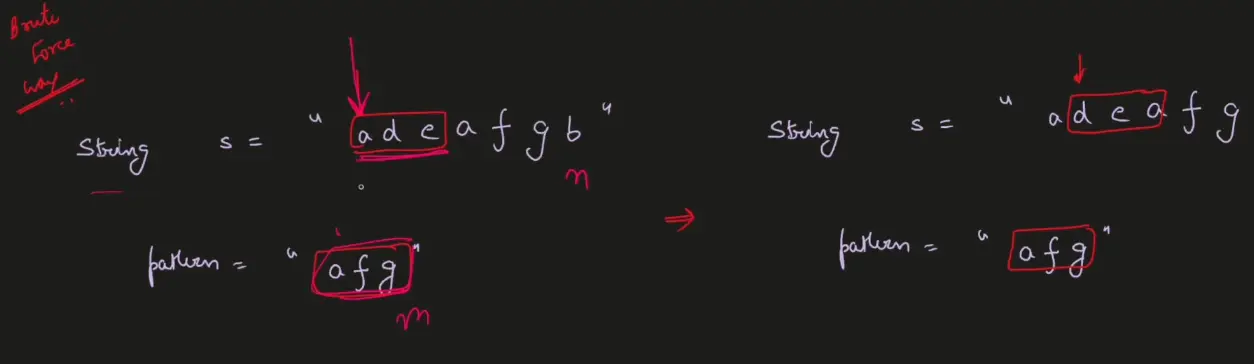 Brute
Force
way
String s = "adeafgb"
n
pattern = "afg"
m
⇒
String s = "adeafg
pattern = "afg"